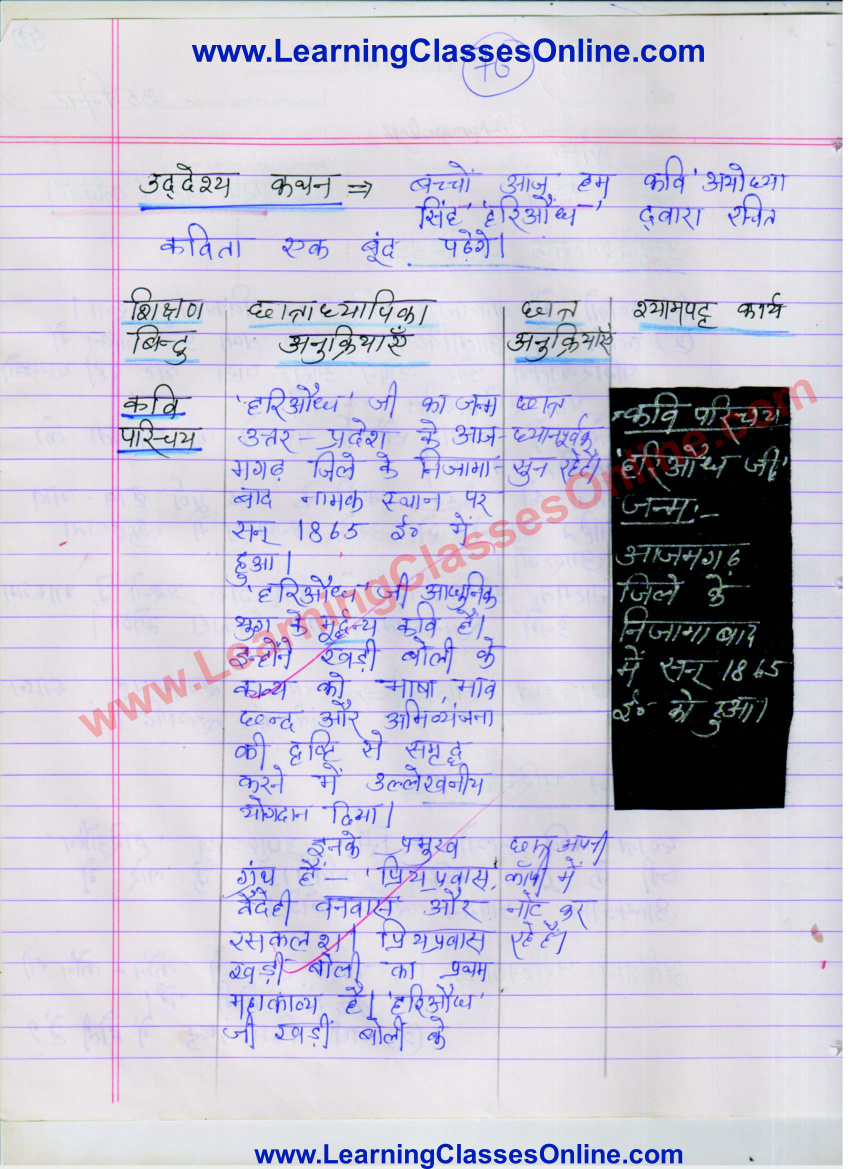 www.LearningClassesOnline.com
76
उद्देश्य कथन ⇒ बच्चों आज हम कवि 'अयोध्या
सिंह 'हरिऔध' द्वारा रचित
कविता एक बूंद पढ़ेंगे।
शिक्षण
बिन्दु
छात्राध्यापिका
अनुक्रियाएँ
छात्र
अनुक्रियाएँ
श्यामपट्ट कार्य
कवि
परिचय
'हरिऔध' जी का जन्म
उत्तर - प्रदेश के आज-
मगढ़ जिले के निजामा-
बाद नामक स्थान पर
सन् 1865 ई० में
हुआ।
'हरिऔध' जी आधुनिक
युग के मूर्द्धन्य कवि है।
इन्होंने खड़ी बोली के
काव्य को भाषा, भाव
छन्द और अभिव्यंजना
की दृष्टि से समृद्ध
करने में उल्लेखनीय
योगदान दिया।
इनके प्रमुख
ग्रंथ हैं - 'प्रियप्रवास,
वैदेही वनवास और
रसकलश। प्रियप्रवास
खड़ी बोली का प्रथम
महाकाव्य है। 'हरिऔध'
जी खड़ी बोली के
छात्र
ध्यानपूर्वक
सुन रहे हैं।
छात्र अपनी
कॉपी में
नोट कर
रहे हैं।
कवि परिचय
'हरिऔध जी'
जन्म:-
आजमगढ़
जिले के
निजामाबाद
में सन् 1865
ई० को हुआ।
www.LearningClassesOnline.com
www.LearningClassesOnline.com